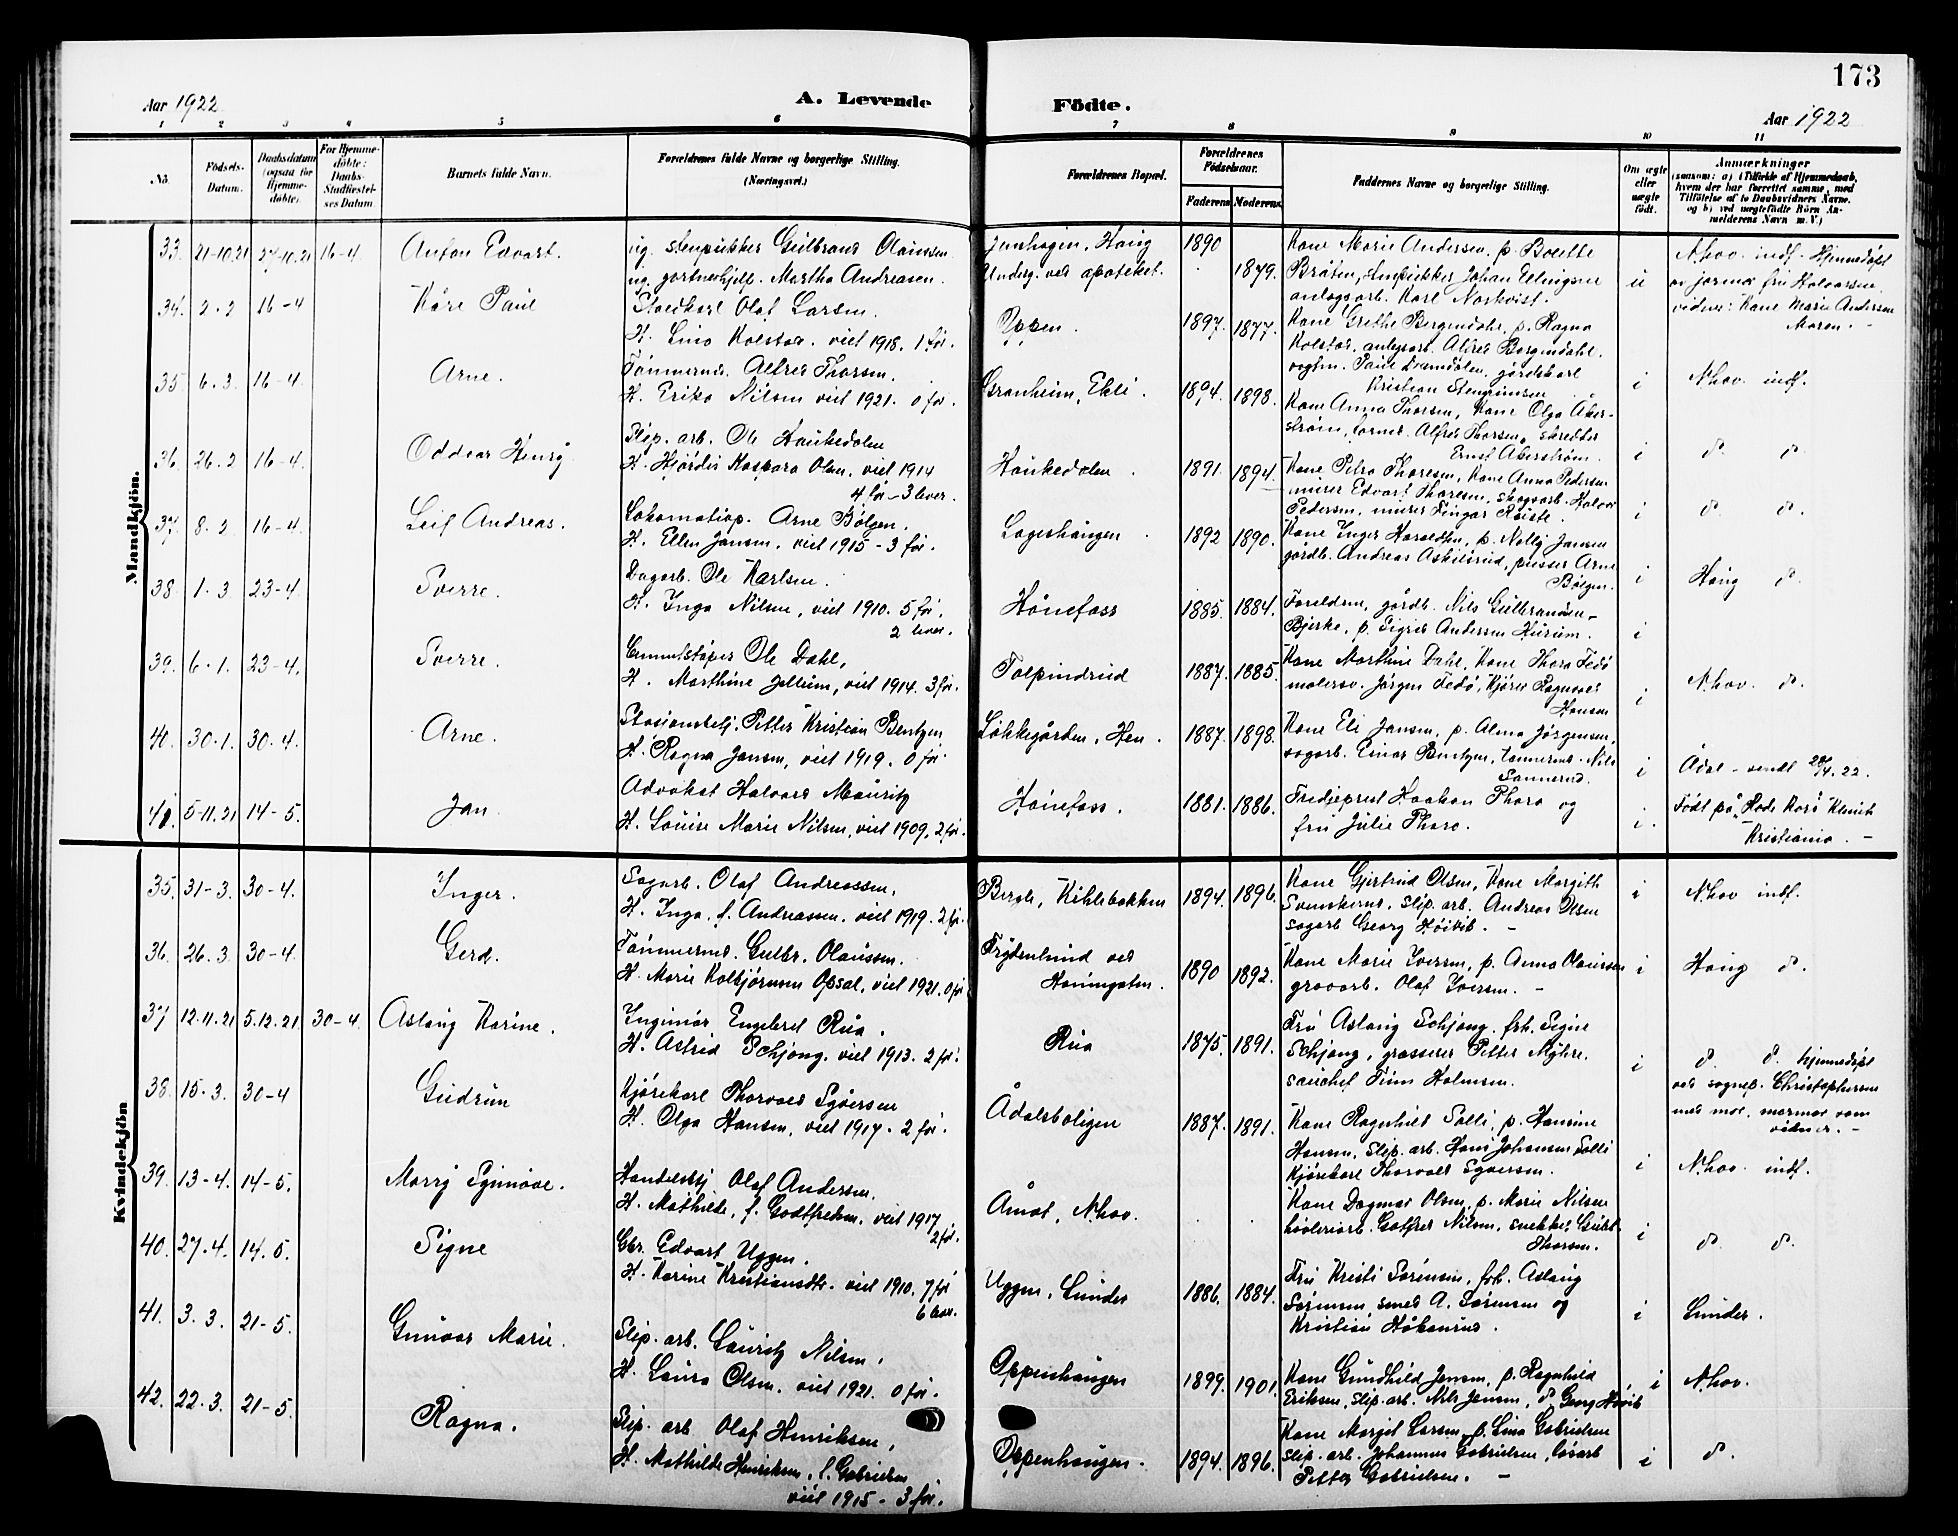 173
Aar 1922
A. Levende
Födte.
Aar 1922
1 2 3 4 5 6 7 8 9 10 11
No.
Födsels-
Datum.
Daabsdatum
(ogsaa for
Hjemme-
döbte).
For Hjemme-
döbte:
Daabs-
Stadfæstel-
ses Datum.
Barnets fulde Navn.
Forældrenes fulde Navne og borgerlige Stilling.
(Næringsvei.)
Forældrenes Bopæl.
Forældrenes
Födselsaar.
Faderens
Moderens
Faddernes Navne og borgerlige Stilling.
Om ægte
eller
uægte
födt.
Anmærkninger
(saasom: a) (Tilfælde af Hjemmedaab,
hvem der har forrettet samme, med
Tilföielse af to Daabsvidners Navne.
og b) ved uægtefödte Börn An-
melderens Navn m. V.)
Mandkjön.
33. 21-10.21 27-10.21 16-4 Anton Edvart.
ug. stenpukker Gulbrand Olaussen
ug. gartnerhjelp. Martha Andreasen.
Haug
Underg. ved apoteket.
1890
1879.
Kone Marie Andersen, p. Bolette
Bråten, stenpukker Johan Ellingsen
anlegsarb. Karl Norkvist.
u
N.hov. indf. Hjemmedøpt
av jormor fru Halvorsen.
vidner: Kone Marie Andersen
Moren. -
34. 2-2 16-4 Kåre Paul
Staldkarl Olaf Larsen.
H. Lina Kolstad. viet 1918. 1 før.
Oppen.
1897. 1877.
Kone Grethe Bergendahl, p. Ragna
Kolstad, anlegsarb. Alfred Bergendahl.
vogtm. Paul Dramdalen, gårdskarl
Kristian Stengrimsen
i
N.hov. indf.
35 6.3. 16-4. Arne.
Tømmermd. Alfred Thorsen.
H. Erika Nilsen viet 1921. 0 før.
Granheim, Ekli.
1894. 1898.
Kone Anna Thorsen, Kone Olga Åker-
strøm, tømmer. Alfred Thorsen, skredder
Ernst Åkerstrøm.
i
d. d.
36. 26.2 16-4. Oddvar Henry
Slip. arb. Ole Haukedalen
H. Hjørdis Kaspara Olsen. viet 1914
4 før - 3 lever.
Haukedalen.
1891. 1894.
Kone Petra Thoresen, Kone Anna Pedersen
murer Edvart Thoresen, skogsarb. Halvor
Pedersen, murer Fingar Røiste.
i
d d.
37. 8.2 16-4. Leif Andreas.
Lokomotivp. Arne Bølgen.
H. Ellen Jansen. viet 1915 - 3 før.
Lageshaugen
1892 1890.
Kone Inger Haraldsen, p. Nelly Jansen
gårdb. Andreas Askilsrud, pusser Arne
Bølgen.
i
Haug d.
38. 1.3 23-4. Sverre.
Dagarb. Ole Karlsen.
H. Inga Nilsen, viet 1910. 5 før,
2 lever.
Hønefoss
1885. 1884.
Foreldrene, gårdb. Nils Gulbrandsen-
Bjerke, p. Sigrid Andersen Hurum.
i
39. 6.1. 23-4. Sverre.
Cementstøper Ole Dahl,
H. Marthine Jellum, viet 1914. 3 før.
Tolpindrud
1887. 1885.
Kone Marthine Dahl, Kone Thora Fedø
malersv. Jørgen Fedø, Kjører Ragnvald
Hansen
i
N.hov. d.
40. 30.1. 30.4. Arne.
Stasjonsbetj. Petter Kristian Bentzen
H. Ragna Jansen, viet 1919. 0 før.
Løkkegården, Hen.
1887. 1898.
Kone Eli Jansen, p. Alma Jørgensen,
sagarb. Einar Bentzen, tømmermd. Nils
Sannerud.
i
Ådal - sendt 28/4. 22.
41. 5-11.21 14-5. Jan
Advokat Halvard Mauritz
H. Louise Marie Nilsen, viet 1909. 2 før.
Hønefoss.
1881. 1886.
Tredjeprest Haakon Tharo og
fru Julie Tharo.
i.
Født på Røde Kors Klinik
Kristiania. -
Kvindekjön
35. 31-3. 30-4. Inger.
Sagarb. Olaf Andreassen,
H. Inga, f. Andreassen. viet 1919. 2 før.
Berget, Kihlebakken
1894. 1896.
Kone Gjertrud Olsen, Kone Margith
Svenskerud, slip. arb. Andreas Olsen
sagarb Georg Høivik. -
i
N.hov indf.
36. 26.3. 30-4. Gerd.
Tømmermd. Gulbr. Olaussen.
H. Marie Kolbjørnsen Opsal, viet 1921. 0 før
Frydenlund ved
Hovinngaten.
1890 1892.
Kone Marie Iversen, p. Anna Olaussen
gravarb. Olaf Iversen. -
i
Haug d.
37 12.11.21 5.12.21. 30-4. Aslaug Karine.
Ingeniør Engebret Rua.
H. Astrid Schjong. viet 1913. 2 før.
Rua
1875. 1891.
Fru Aslaug Schjong. frk. Signe
Schjong, grosserer Petter Myhre.
Finn Holmsen.
i
d. d. hjemmedøpt
ved sognep. Christophersen
med mor, mormor som
vidner. -
38. 15.3. 30-4 Gudrun
Kjørekarl Thorvald Syversen
H. Olga Hansen, viet 1917. 2 før.
Ådalsboligen
1887. 1891.
Kone Ragnhild Solli, p. Hansine
Hansen, slip. arb. Hans Johansen Solli
Kjørekarl Thorvald Syversen.
i
N.hov. indf.
39. 13-4. 14-5. Marry Synnøve.
Handelsbj. Olaf Andersen.
H. Mathilde, f. Godtfredsen. viet 1917.
2 før.
Åmot, N.hov.
Kone Dagmar Olsen, p. Marie Nilsen
høvleriarb. Gotfred Nilsen, snekker Gulbr.
Thorsen.
i
d. d.
40. 27.4. 14.5. Signe
Gbr. Edvart Uggen.
H. Karine Kristiansdtr. viet 1910. 7 før
6 lever.
Uggen, Lunder
1886. 1884.
Fru Kristi Sørensen, frk. Aslaug
Sørensen, smed A. Sørensen og
Kristian Håkenrud.
i
Lunder.
41. 3.3. 21-5. Gunvor Marie.
Slip. arb. Lauritz Nilsen,
H. Laura Olsen. viet 1921. 0 før.
Oppenhaugen
1899. 1901.
Kone Gundhild Jensen, p. Ragnhild
Eriksen, slip. arb. Nils Jensen, d. Georg Høivik
i
N.hov.
42. 22.3. 21-5. Ragna.
Slip. arb Olaf Henriksen,
H. Mathilde Henriksen, f. Gabrielsen
viet 1915 - 3 før.
Oppenhaugen.
1894. 1896.
Kone Margit Larsen, p. Lina Gabrielsen
slip. arb. Johannes Gabrielsen, løsarb
Petter Gabrielsen. -
i
d.